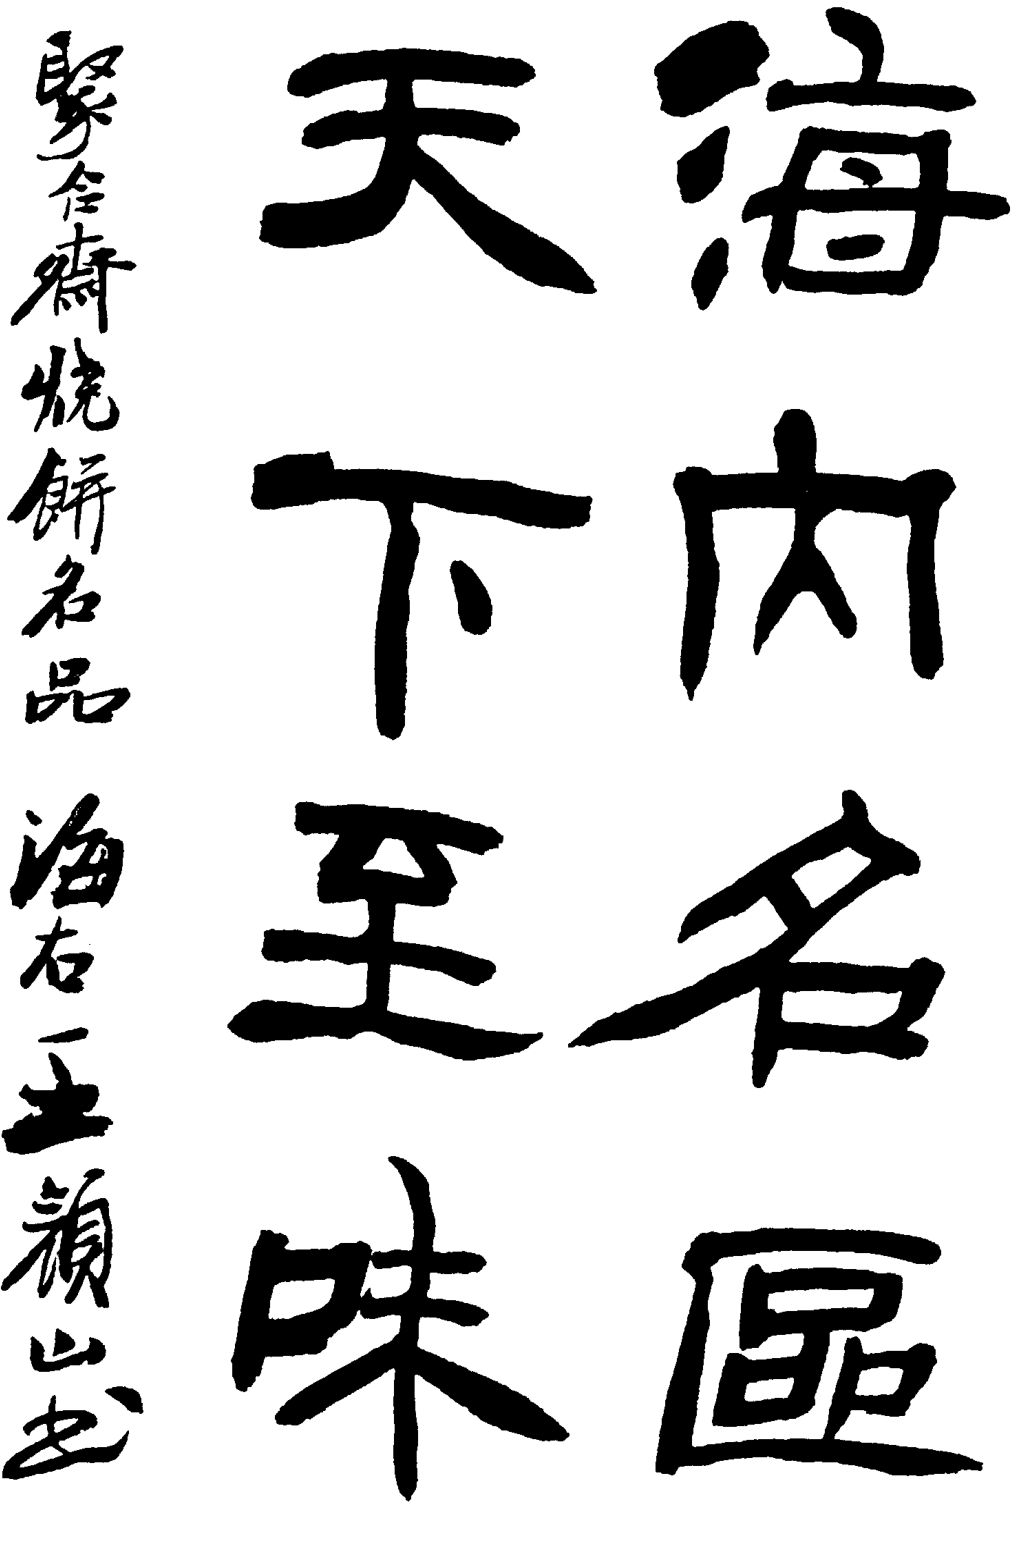 海内名區
天下至味
聚合齋燒餅名品 海右王顏山书